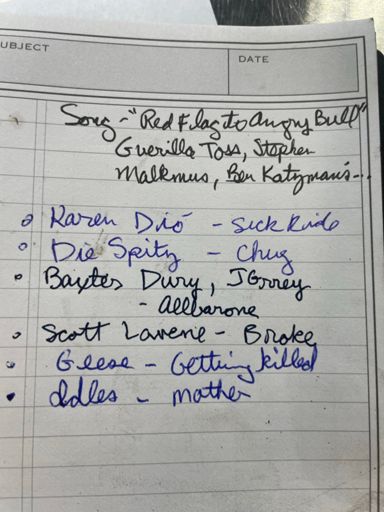 SUBJECT
DATE
Song - "Red Flag to Angry Bull"
Guerilla Toss, Stephen
Malkmus, Ben Katzman's...
Karen Dió - Sick Ride
Die Spitz - Chug
Baxter Dury, JGrrey
- Allbarone
Scott Lavene - Broke
Geese - Getting killed
Idles - mother